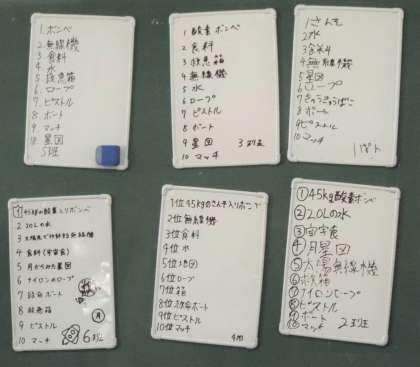 1 ボンベ
2 無線機
3 食料
4 水
5 救急箱
6 ロープ
7 ピストル
8 ボート
9 マッチ
10 星図
5班
1 酸素ボンベ
2 食料
3 救急箱
4 無線機
5 水
6 ロープ
7 ピストル
8 ボート
9 星図 3班
10 マッチ
1 さんそ
2 水
3 食料
4 無線機
5 星図
6 ロープ
7 きゅうきゅうばこ
8 ボート
9 ピストル
10 マッチ
1 45kgの酸素入りボンベ
2 20Lの水
3 太陽電で
4 食料(宇宙食)
5 月からみた星図
6 ナイロンのロープ
7 救命ボート
8 救急箱
9 ピストル
10 マッチ 6班
1位 45kgのさんそ入りボンベ
2位 無線機
3位 食料
4位 水
5位 地図
6位 ロープ
7位 箱
8位 救命ボート
9位 ピストル
10位 マッチ
①45kg酸素ボンベ
②20Lの水
③宇宙食
④月星図
⑤太陽無線機
⑥救急箱
⑦ナイロンロープ
⑧ピストル
⑨ボート
⑩マッチ 2班